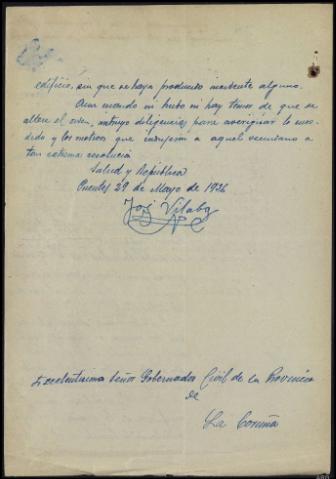 edificio, sin que se haya producido incidente alguno.
Aun cuando ni hubo ni hay temor de que se
altere el orden, instruyo diligencias para averiguar lo suce-
dido y los motivos que indujeron a aquel vecindario a
tan extrema resolución
Salud y República
Puentes 29 de Mayo de 1936
José Vilaboy
Excelentísimo Señor Gobernador Civil de la Provincia
de
La Coruña